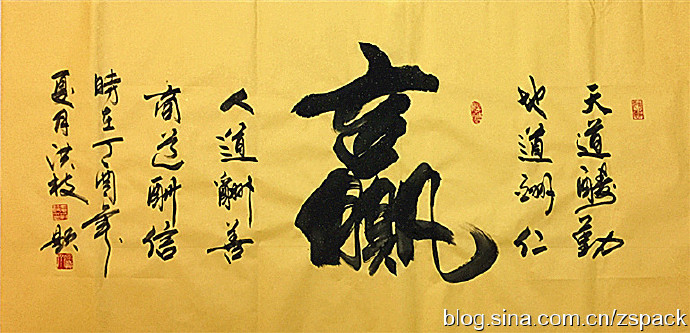 天道酬勤
地道酬仁
贏
人道酬善
商道酬信
時在丁酉年
夏月洪枝題
blog.sina.com.cn/zspack